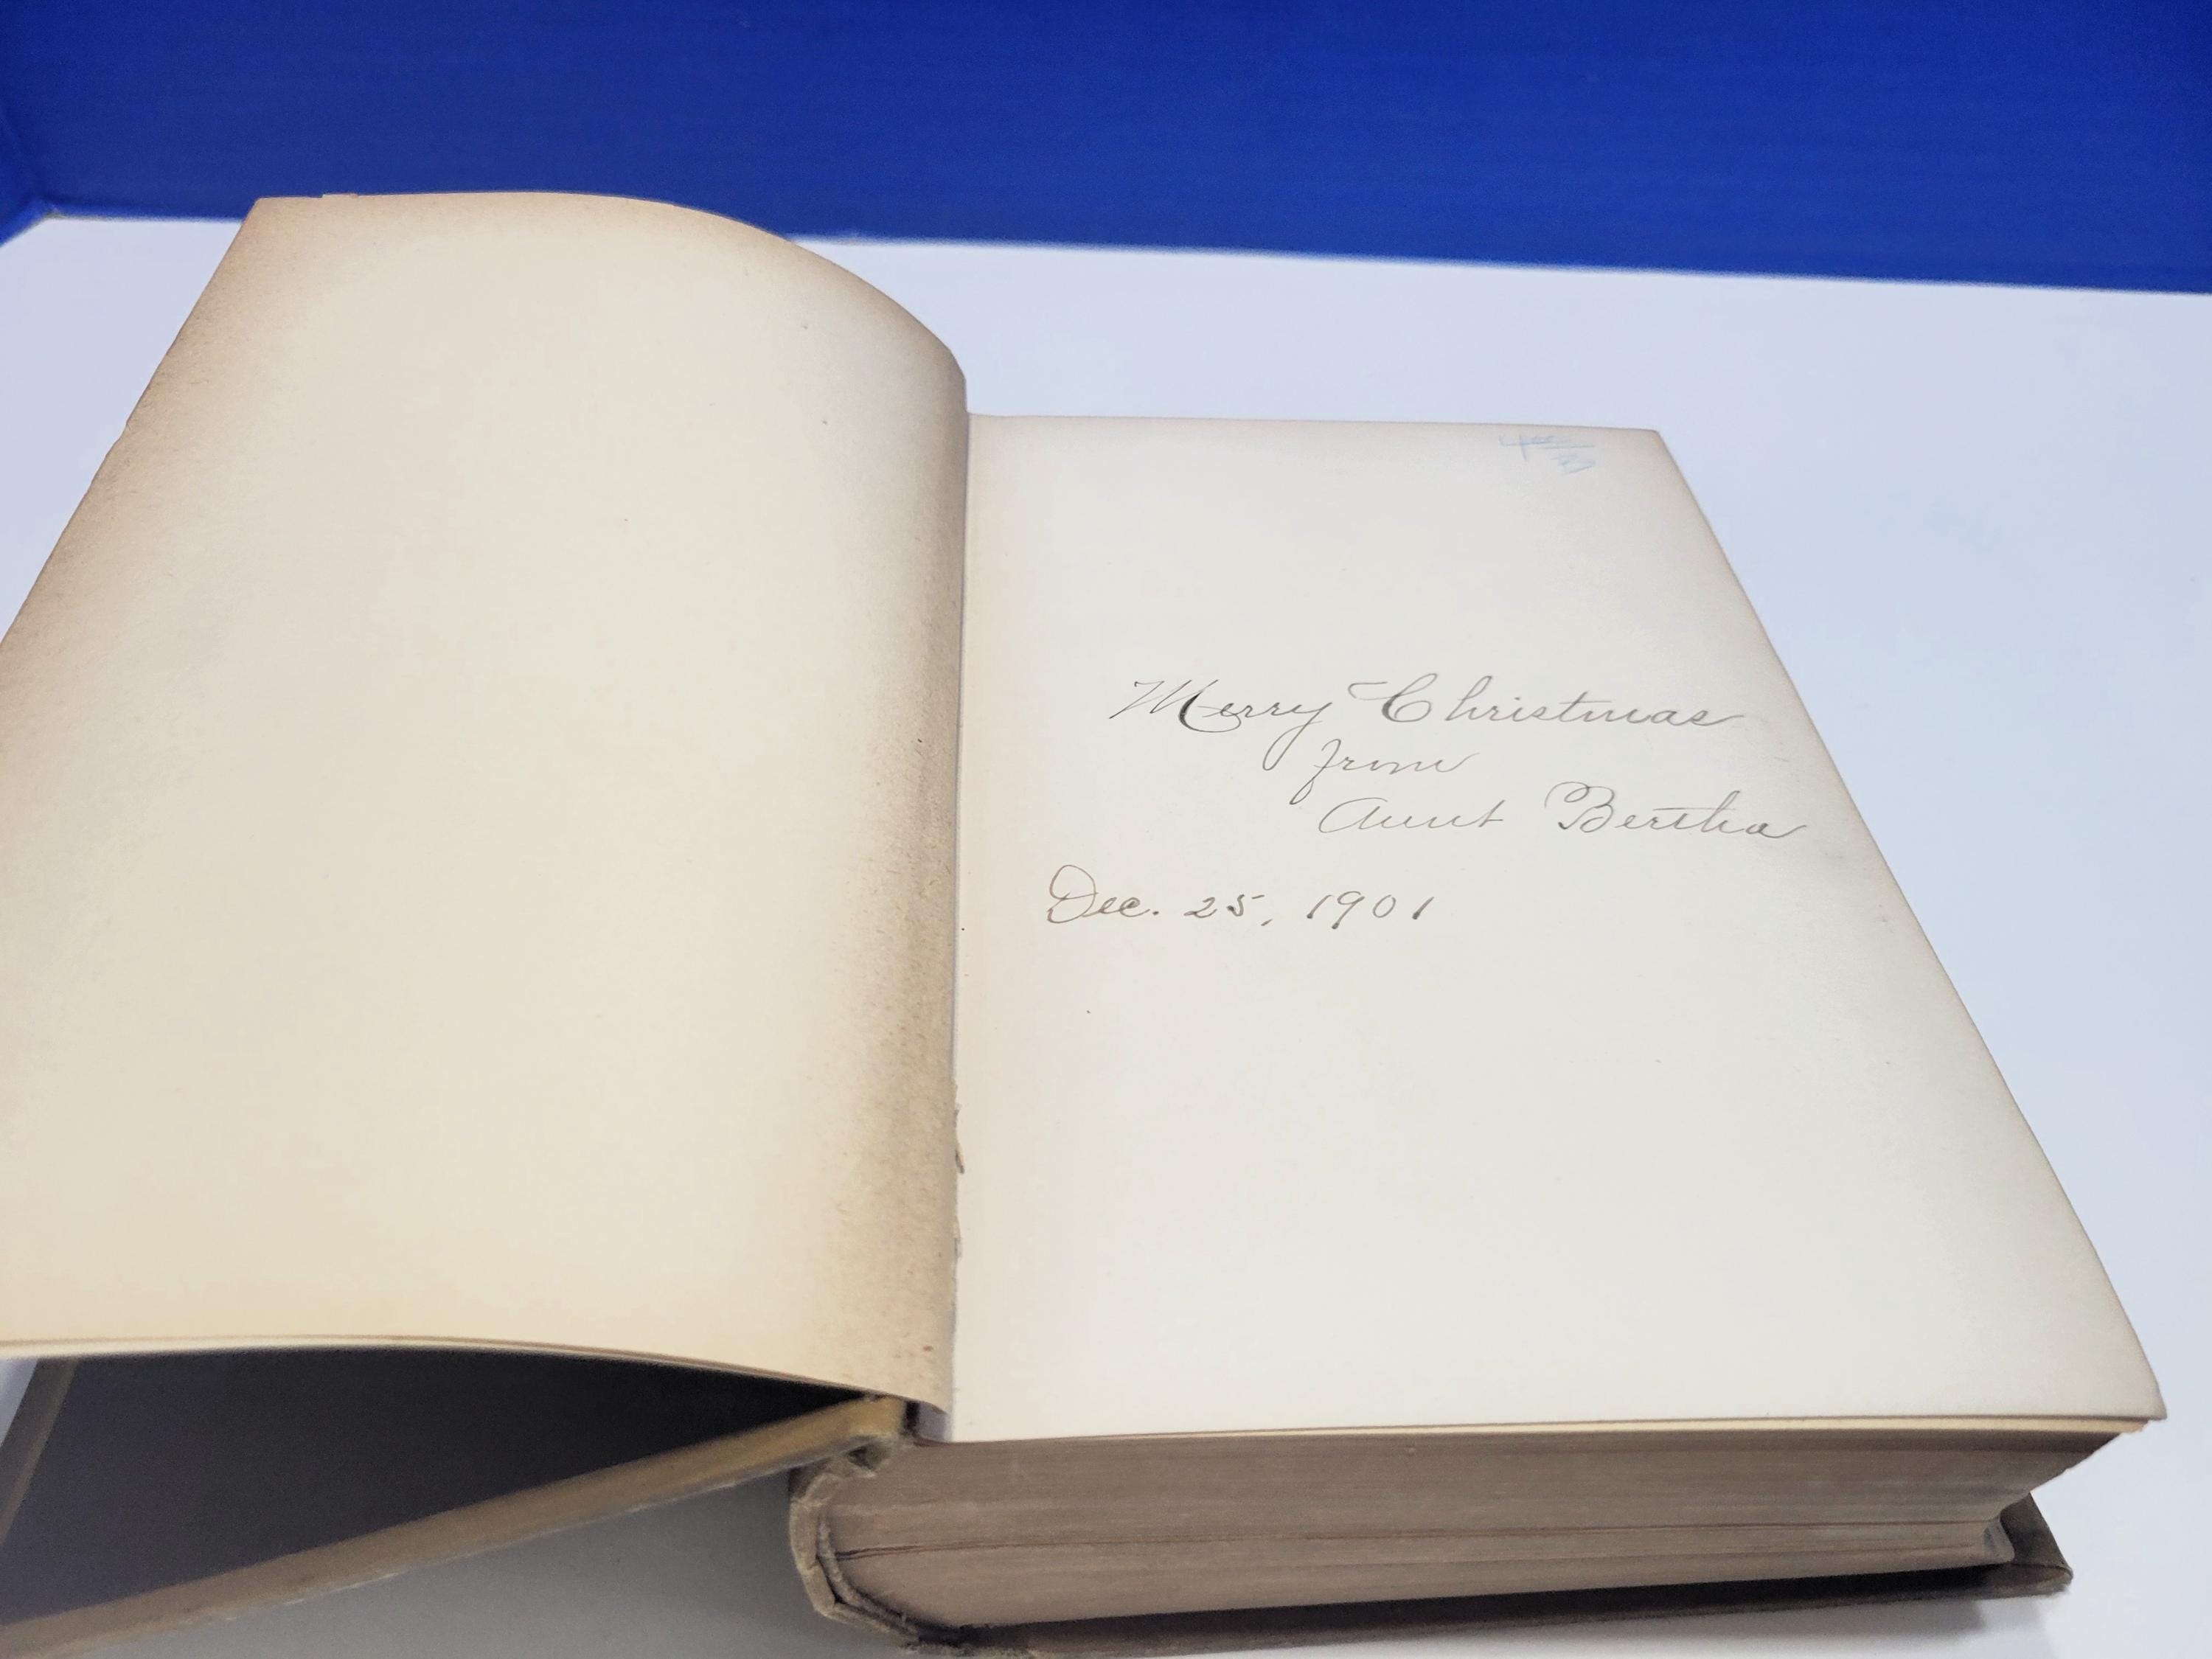 Merry Christmas
from
Aunt Bertha
Dec. 25, 1901